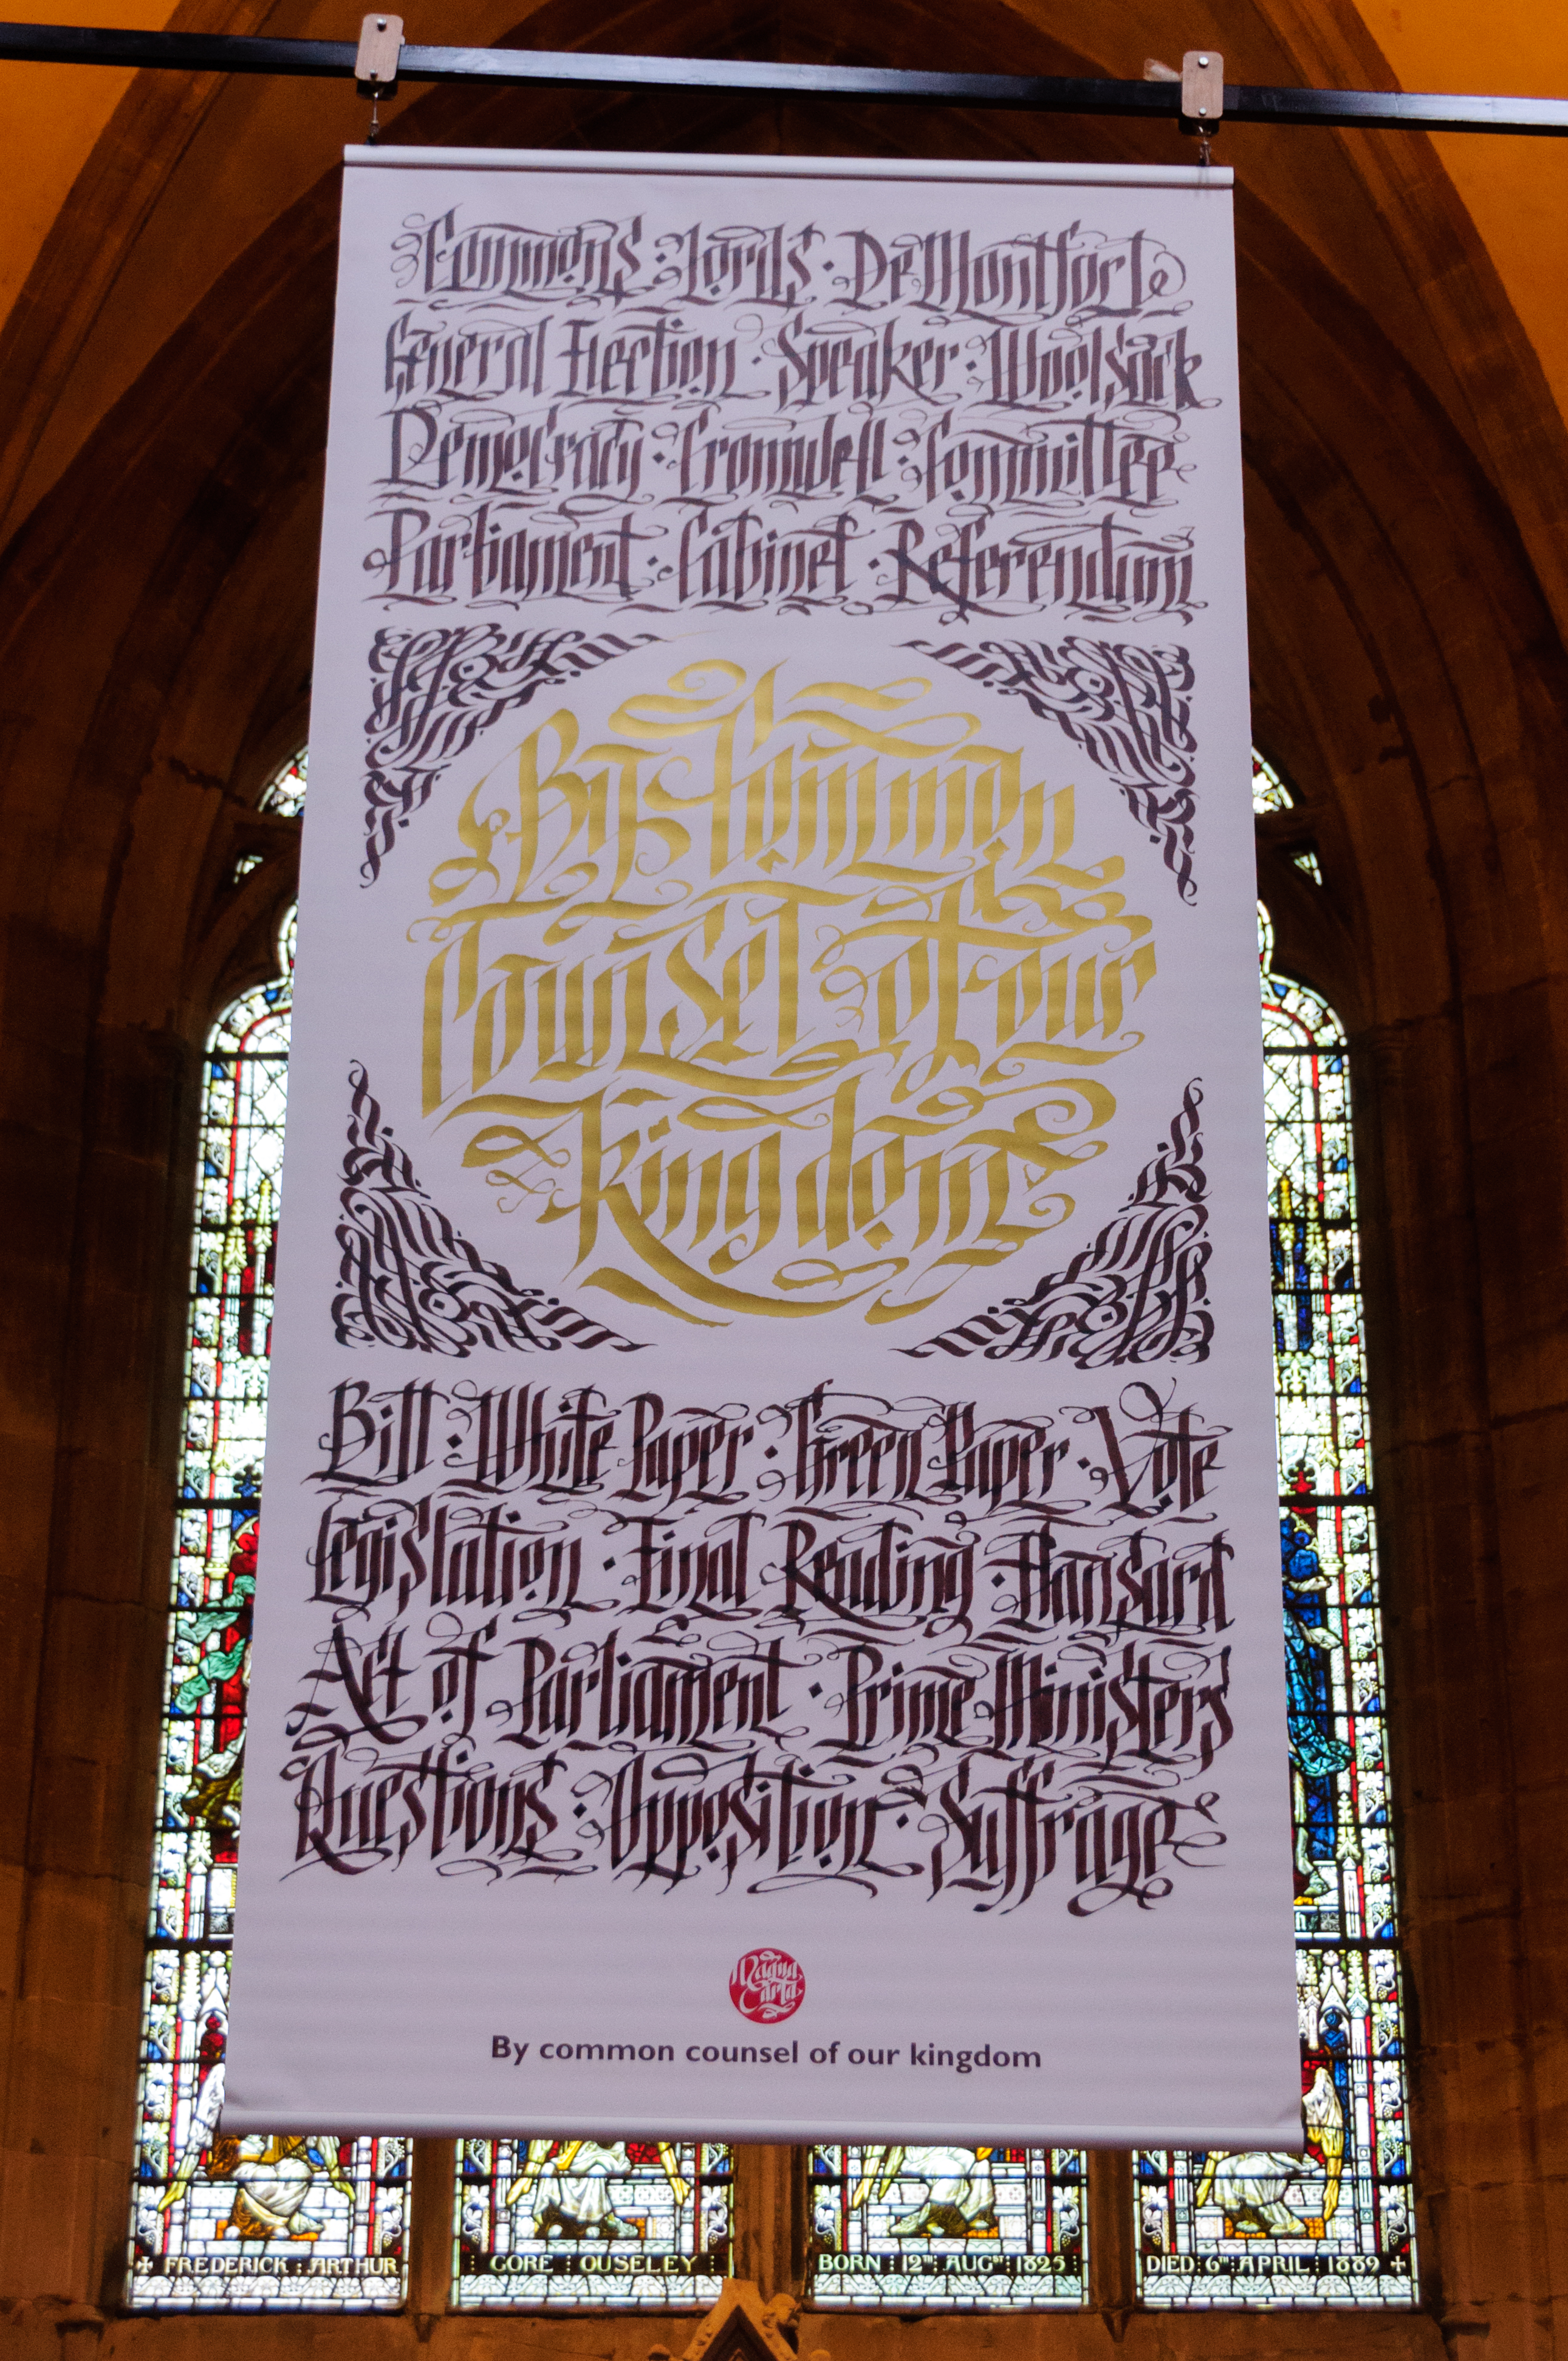 Commons · Lords · De Montfort
General Election · Speaker · Woolsack
Democracy · Cromwell · Committee
Parliament · Cabinet · Referendum
By Common
Counsel of our
Kingdom
Bill · White Paper · Green Paper · Vote
Legislation · Final Reading · Hansard
Act of Parliament · Prime Ministers
Questions · Opposition · Suffrage
Magna
Carta
By common counsel of our kingdom
FREDERICK : ARTHUR
GORE : OUSELEY
BORN : 12TH : AUGST : 1825
DIED : 6TH : APRIL : 1889